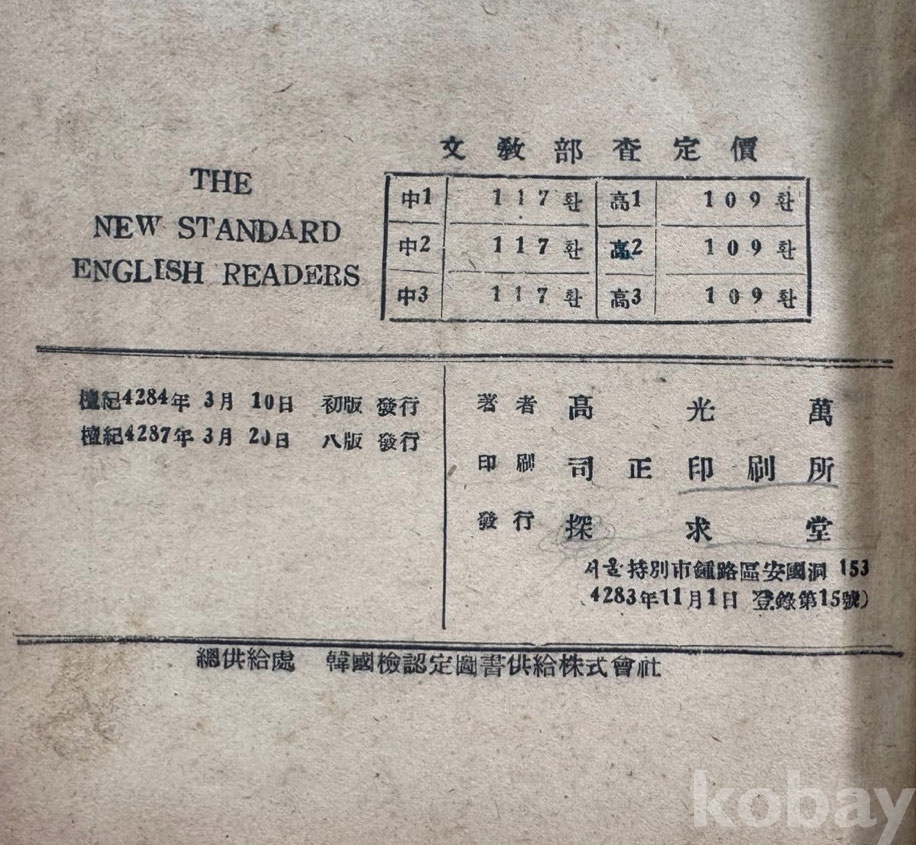 THE
NEW STANDARD
ENGLISH READERS
文敎部査定價
中1 117환 高1 109환
中2 117환 高2 109환
中3 117환 高3 109환
檀紀4284年 3月 10日 初版 發行
檀紀4287年 3月 20日 八版 發行
著者 高光萬
印刷 司正印刷所
發行 探求堂
서울特別市鍾路區安國洞 153
4283年11月1日 登錄第15號)
總供給處 韓國檢認定圖書供給株式會社
kobay